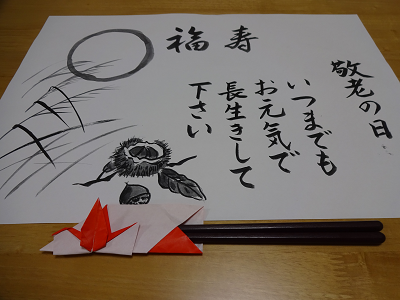 敬老の日
寿福
いつまでも
お元気で
長生きして
下さい